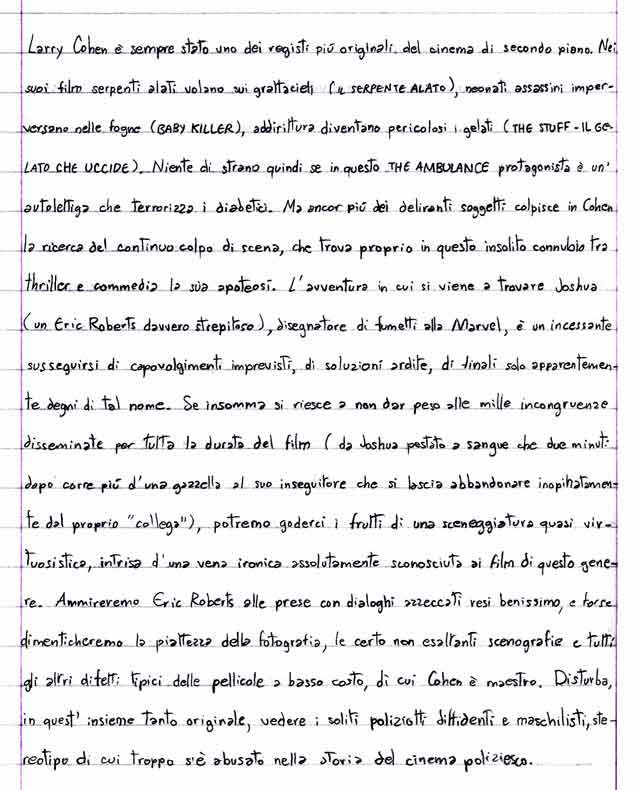 Larry Cohen è sempre stato uno dei registi più originali del cinema di secondo piano. Nei
suoi film serpenti alati volano sui grattacieli (IL SERPENTE ALATO), neonati assassini imper-
versano nelle fogne (BABY KILLER), addirittura diventano pericolosi i gelati (THE STUFF - IL GE-
LATO CHE UCCIDE). Niente di strano quindi se in questo THE AMBULANCE protagonista è un'
autolettiga che terrorizza i diabetici. Ma ancor più dei deliranti soggetti colpisce in Cohen
la ricerca del continuo colpo di scena, che trova proprio in questo insolito connubio tra
thriller e commedia la sua apoteosi. L'avventura in cui si viene a trovare Joshua
(un Eric Roberts davvero strepitoso), disegnatore di fumetti alla Marvel, è un incessante
susseguirsi di capovolgimenti imprevisti, di soluzioni ardite, di finali solo apparentemen-
te degni di tal nome. Se insomma si riesce a non dar peso alle mille incongruenze
disseminate per tutta la durata del film (da Joshua pestato a sangue che due minuti
dopo corre più d'una gazzella al suo inseguitore che si lascia abbandonare inopinatamen-
te dal proprio "collega"), potremo goderci i frutti di una sceneggiatura quasi vir-
tuosistica, intrisa d'una vena ironica assolutamente sconosciuta ai film di questo gene-
re. Ammireremo Eric Roberts alle prese con dialoghi azzeccati resi benissimo, e forse
dimenticheremo la piattezza della fotografia, le certo non esaltanti scenografie e tutti
gli altri difetti tipici delle pellicole a basso costo, di cui Cohen è maestro. Disturba,
in quest' insieme tanto originale, vedere i soliti poliziotti diffidenti e maschilisti, ste-
reotipo di cui troppo s'è abusato nella storia del cinema poliziesco.